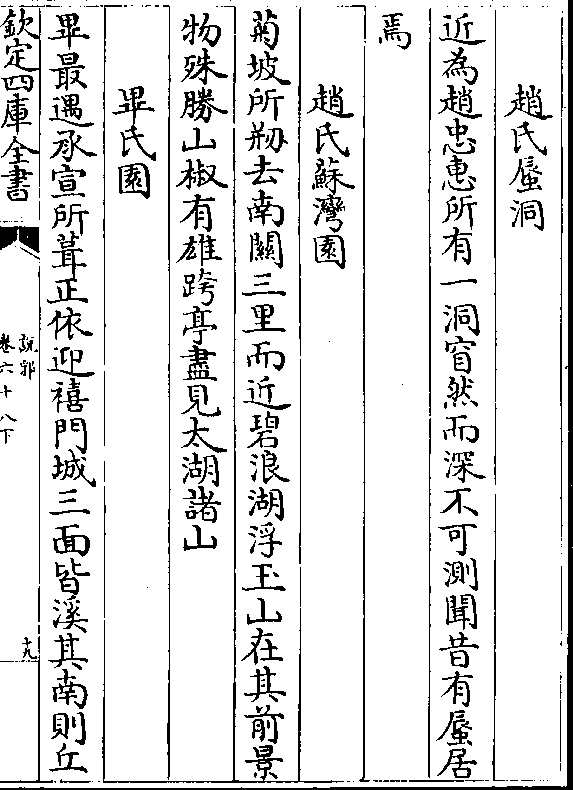 趙氏蜃洞
近為趙忠惠所有一洞窅然而深不可測聞昔有蜃居
焉
趙氏蘇灣園
菊坡所剏去南關三里而近碧浪湖浮玉山在其前景
物殊勝山椒有雄跨亭盡見太湖諸山
畢氏園
畢最遇承宣所葺正依迎禧門城三面皆溪其南則丘
欽定四庫全書
說郛
卷六十八下
十九